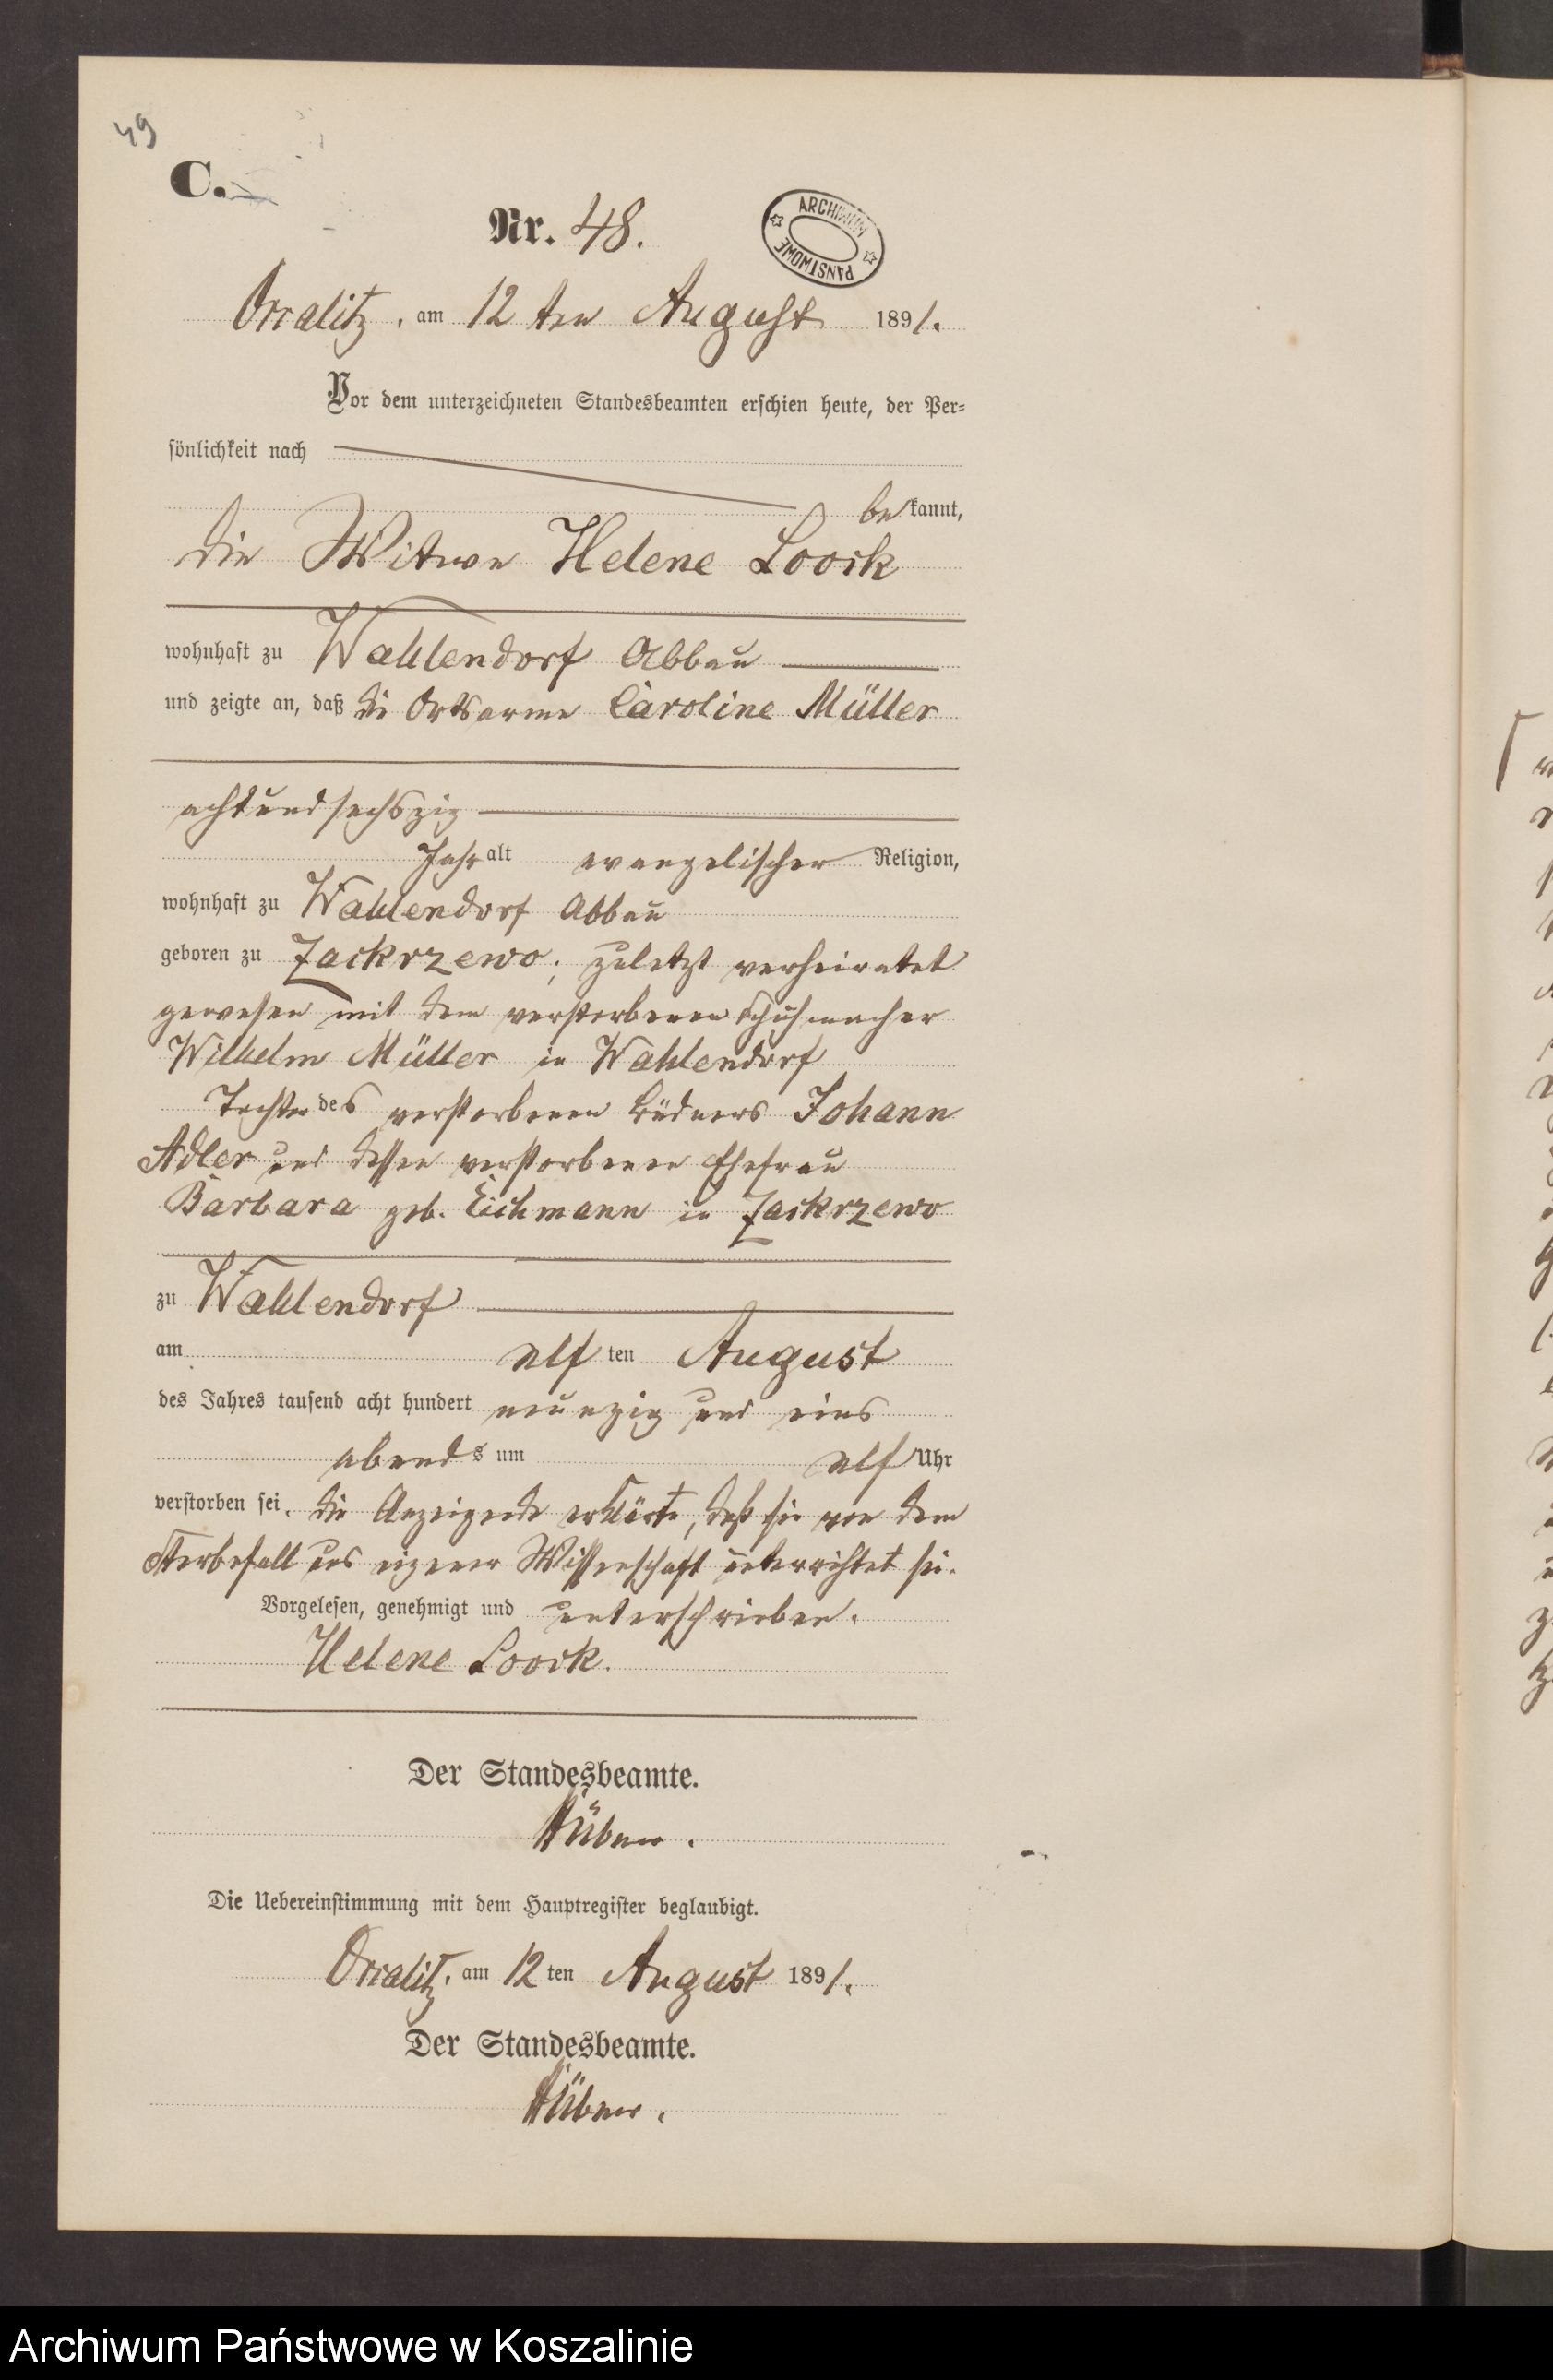 49
C.
Nr. 48.
ARCHIWUM PAŃSTWOWE
Orralitz, am 12 ten August 1891.
Vor dem unterzeichneten Standesbeamten erschien heute, der Per-
sönlichkeit nach
bekannt,
die Witwe Helene Loock
wohnhaft zu Wahlendorf Abbau
und zeigte an, daß die Ortsarme Caroline Müller
achtundsechszig
Jahr alt evangelischer Religion,
wohnhaft zu Wahlendorf Abbau
geboren zu Zackrzewo; zuletzt verheiratet
gewesen mit dem verstorbenen Schuhmacher
Wilhelm Müller in Wahlendorf
Tochter des verstorbenen Büdners Johann
Adler und dessen verstorbenen Ehefrau
Barbara geb. Eichmann in Zackrzewo
zu Wahlendorf
am elf ten August
des Jahres tausend acht hundert neunzig und eins
abends um elf Uhr
verstorben sei. Die Anzeigende erklärte, daß sie von dem
Sterbefall aus eigener Wissenschaft unterrichtet sei.
Vorgelesen, genehmigt und unterschrieben.
Helene Loock.
Der Standesbeamte.
Hübner.
Die Uebereinstimmung mit dem Hauptregister beglaubigt.
Orralitz, am 12 ten August 1891.
Der Standesbeamte.
Hübner.
Archiwum Państwowe w Koszalinie